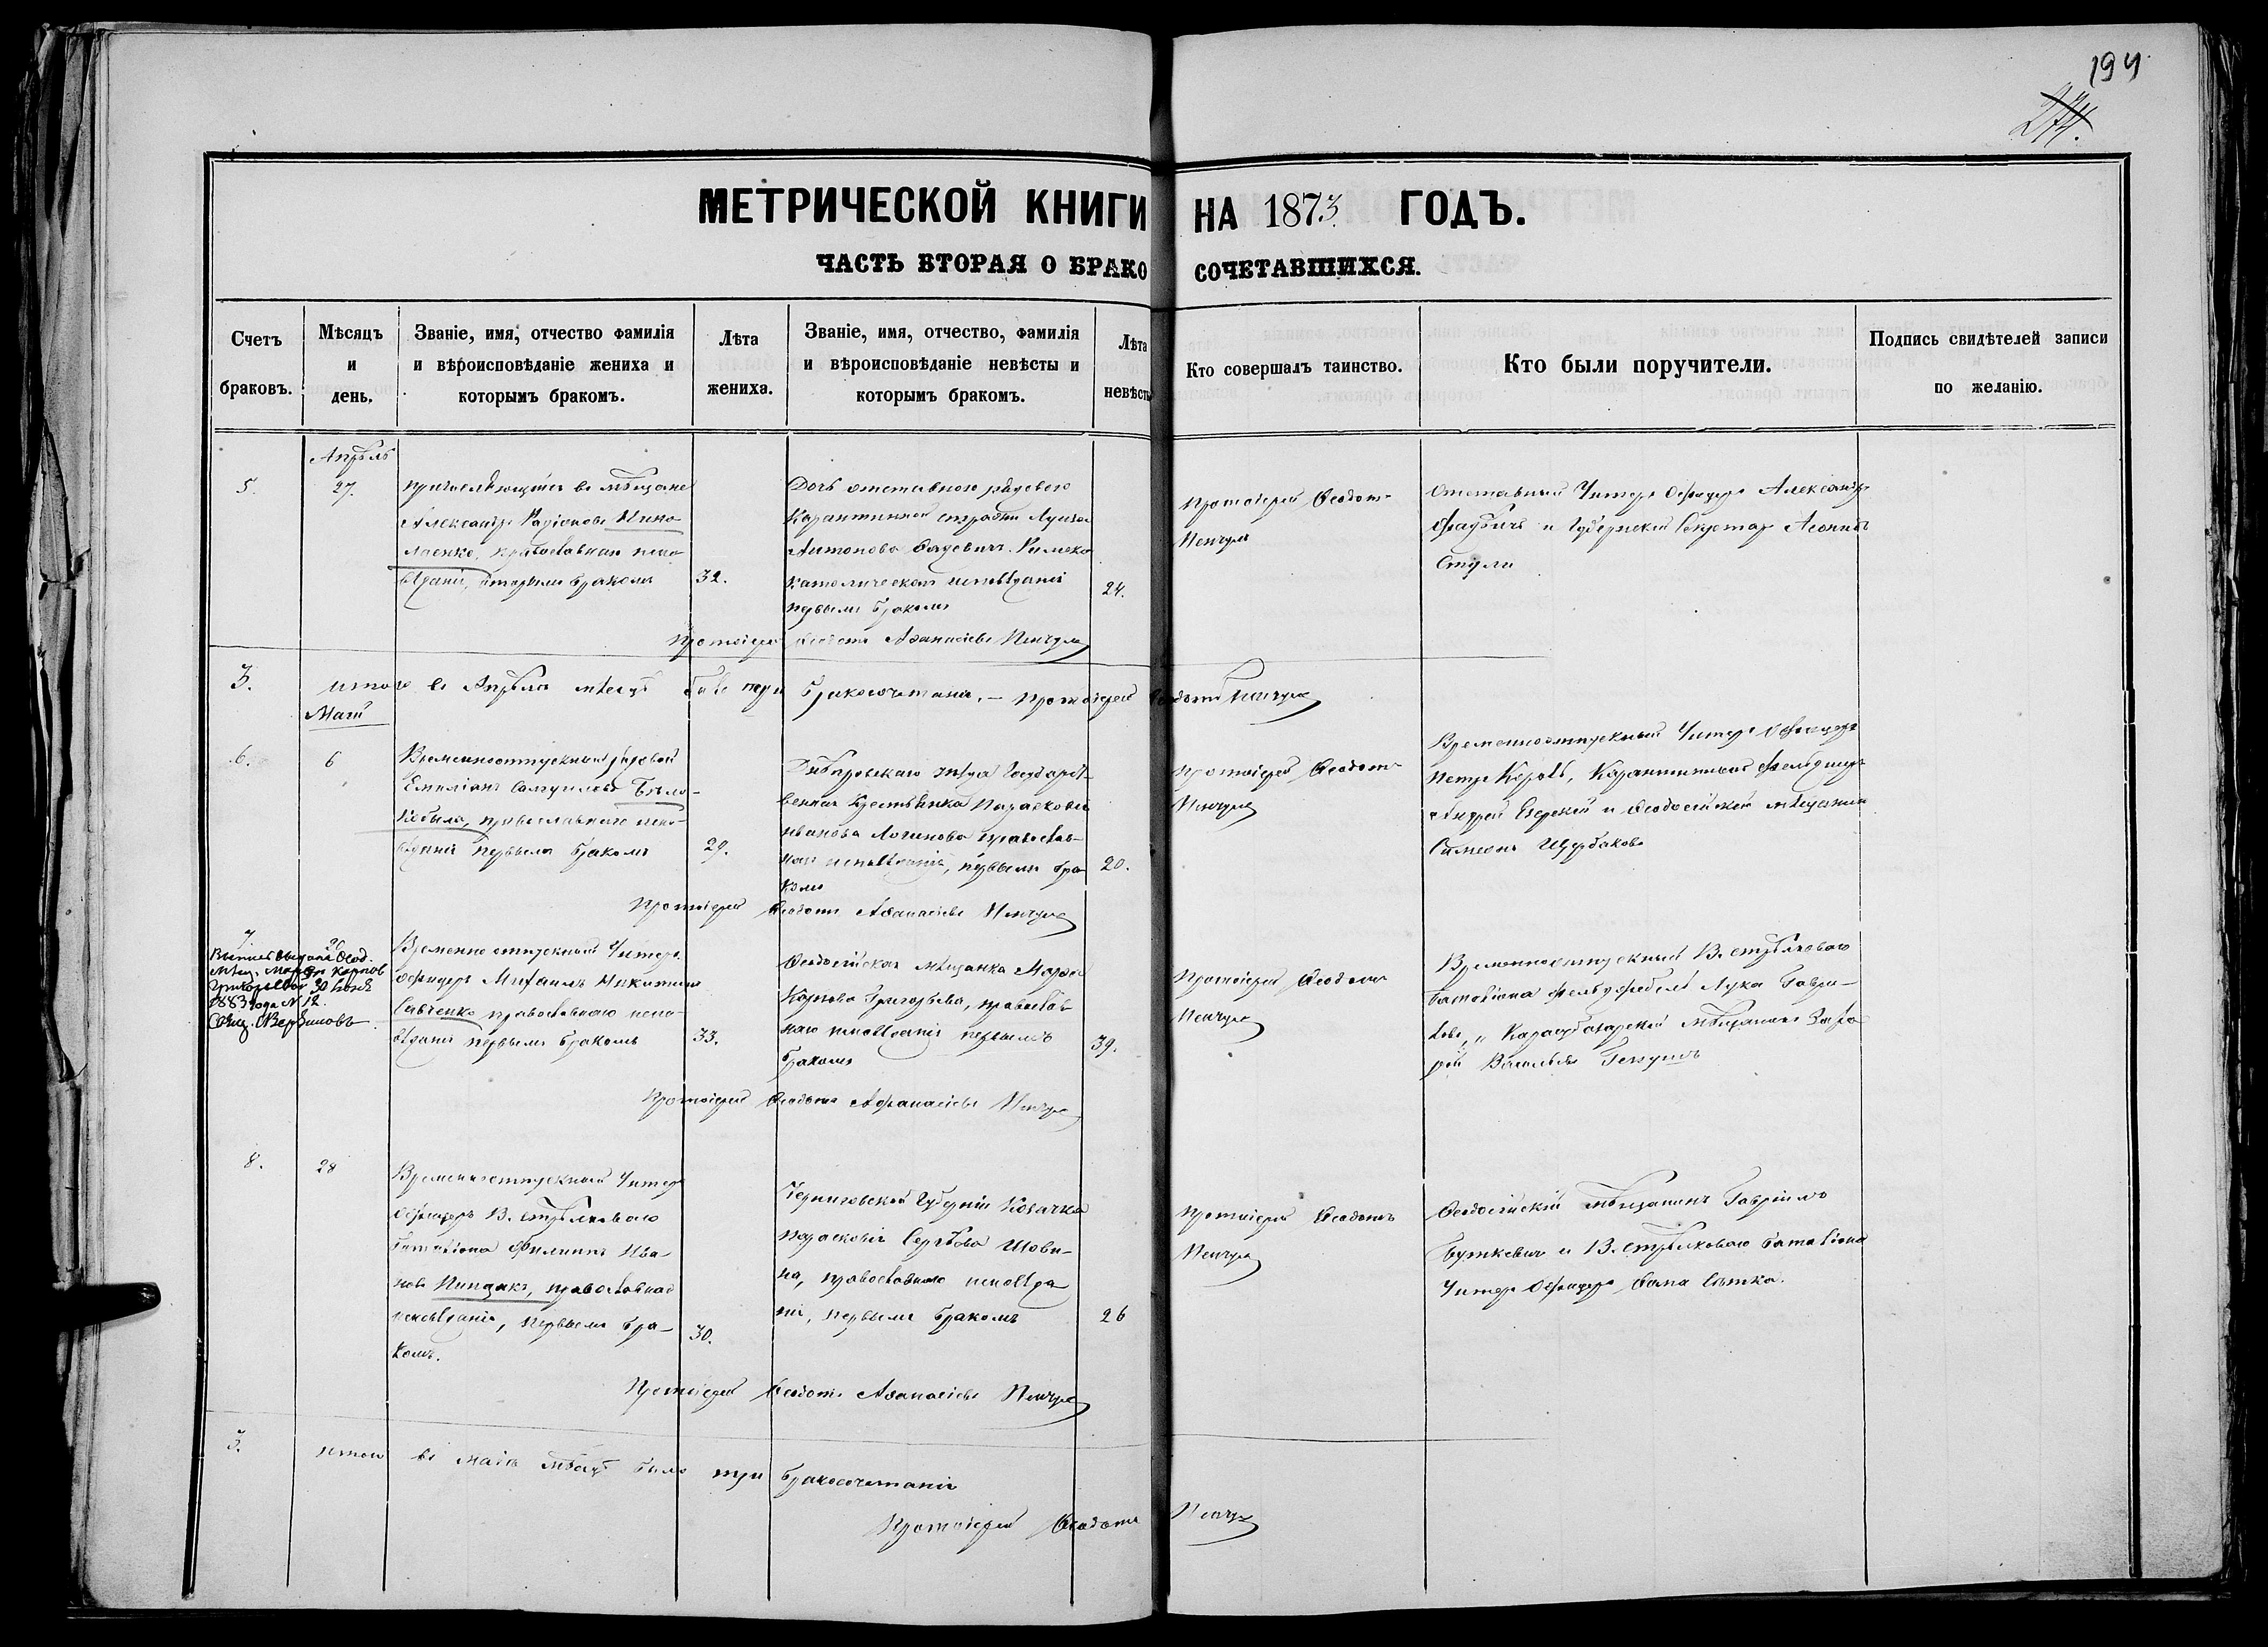 194
274.
МЕТРИЧЕСКОЙ КНИГИ НА 1873 ГОДЪ.
ЧАСТЬ ВТОРАЯ О БРАКОСОЧЕТАВШИХСЯ.
Счетъ браковъ.
Мѣсяцъ и день.
Званіе, имя, отчество фамилія
и вѣроисповѣданіе жениха и
которымъ бракомъ.
Лѣта жениха.
Званіе, имя, отчество, фамилія
и вѣроисповѣданіе невѣсты и
которымъ бракомъ.
Лѣта невѣсты
Кто совершалъ таинство.
Кто были поручители.
Подпись свидѣтелей записи
по желанію.
Апрѣль
5.
27.
въ мѣщане
Александръ
православнаго испо-
вѣданія, вторымъ бракомъ
32.
Дочь отставного рядового
Карантинной стражи
Антонова Римско
католическаго исповѣданія
первымъ бракомъ
24.
Протоіерей Ѳеодотъ
Отставный Унтеръ Офицеръ Александръ
и Губернскій Секретарь
Протоіерей Ѳеодотъ Аѳанасіевъ
3.
Итого въ Апрѣлѣ мѣсяцѣ было три бракосочетанія. — Протоіерей Ѳеодотъ
Май
6.
6
Временноотпускный рядовой
Емиліанъ Самуиловъ Бѣло-
кобыла, православнаго испо-
вѣданія первымъ бракомъ
29.
Днѣпровскаго уѣзда Государст-
венная крестьянка Параскева
Иванова Логинова православ-
наго исповѣданія, первымъ бра-
комъ
20.
Протоіерей Ѳеодотъ
Временноотпускный Унтеръ Офицеръ
Петръ Карантинный фельдшеръ
Андрей и Ѳеодосійскій мѣщанинъ
Симеонъ Щербаковъ
Протоіерей Ѳеодотъ Аѳанасіевъ
7.
26
1883 года № 12.
Временно отпускный Унтеръ
Офицеръ Михаилъ Никитинъ
Савченко православнаго испо-
вѣданія первымъ бракомъ
33.
Ѳеодосійская мѣщанка
Карпова Григорьева, православ-
наго исповѣданія первымъ
бракомъ
39.
Протоіерей Ѳеодотъ
Временноотпускный В. стрѣлковаго
баталіона фельдфебель Лука Гаври-
ловъ, и Карасубазарскій мѣщанинъ
Васильевъ
Протоіерей Ѳеодотъ Афанасіевъ
8.
28
Временноотпускный Унтеръ
Офицеръ В. стрѣлковаго
баталіона Филиппъ Ива-
новъ православнаго
исповѣданія, первымъ бра-
комъ.
30.
Черниговской Губерніи Козачка
Параскевія Сергѣева
православнаго исповѣда-
нія, первымъ бракомъ
26
Протоіерей Ѳеодотъ
Ѳеодосійскій мѣщанинъ Гавріилъ
Буткевичъ и В. стрѣлковаго баталіона
Унтеръ Офицеръ
Протоіерей Ѳеодотъ Аѳанасіевъ
3.
Итого въ Маѣ мѣсяцѣ было три бракосочетанія
Протоіерей Ѳеодотъ